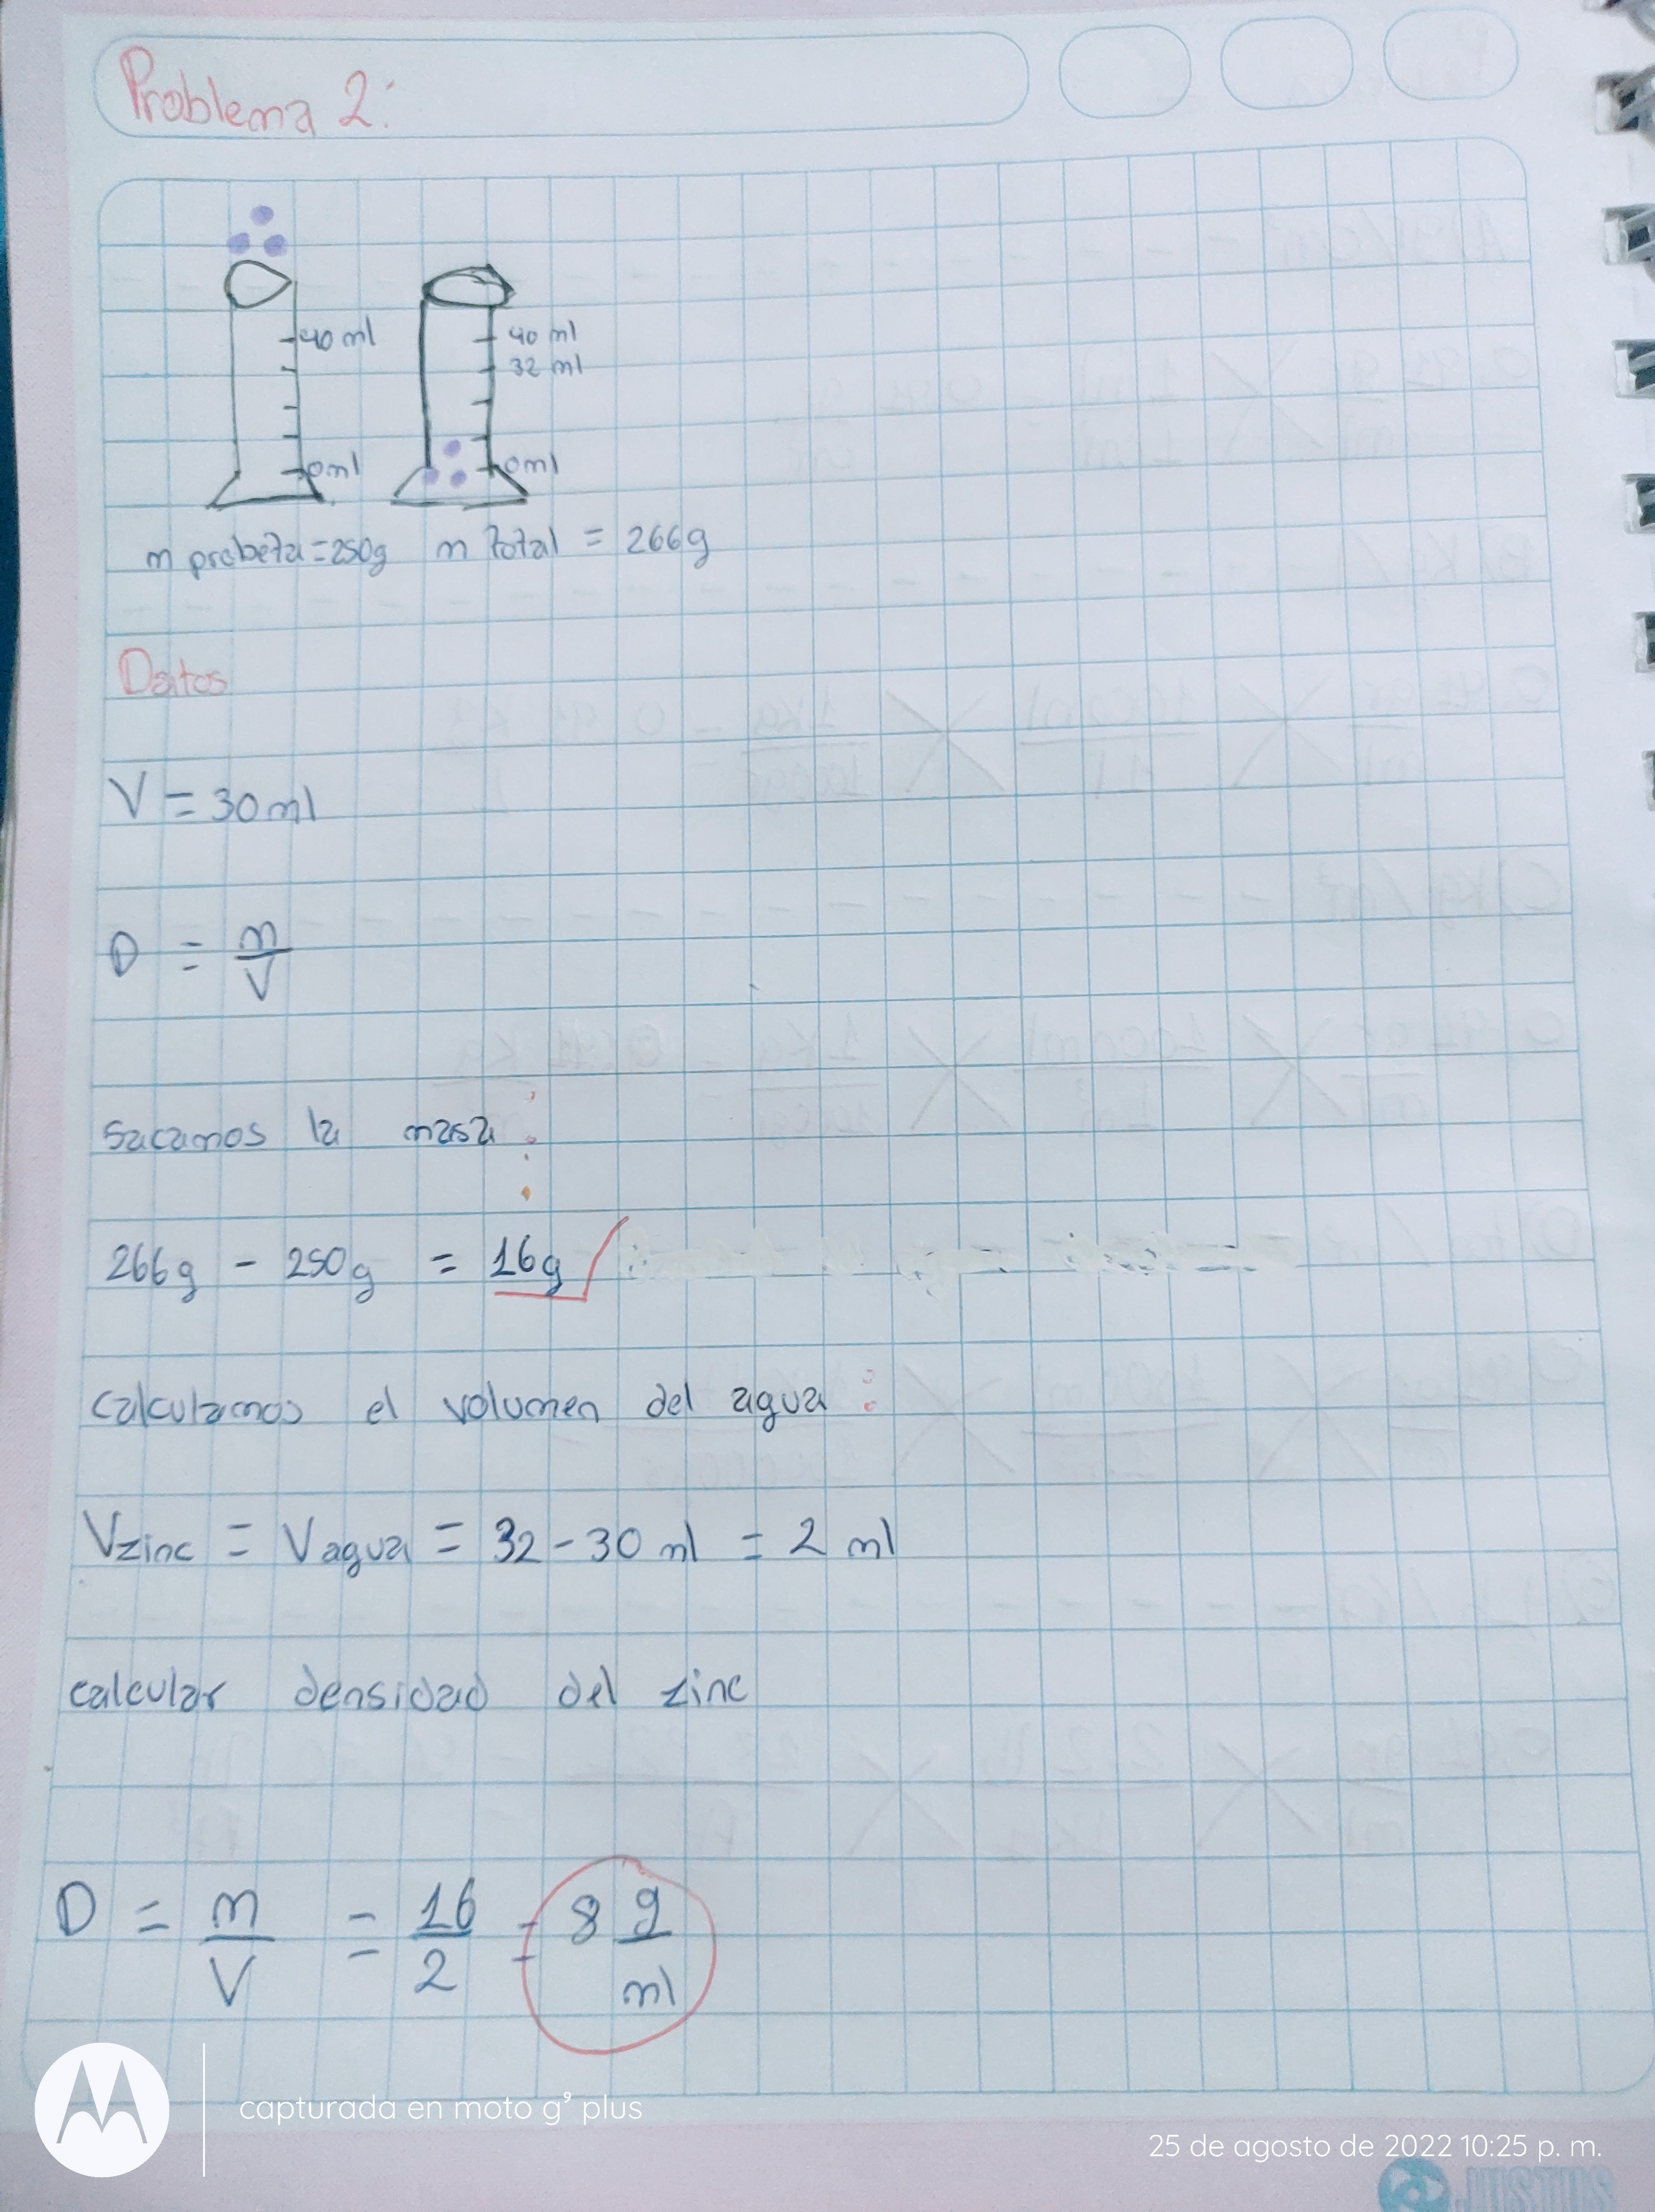 Problema 2:
40 ml
40 ml
32 ml
0ml
0ml
m probeta=250g m total = 266g
Datos
V = 30ml
D = m/V
sacamos la masa :
266g - 250g = 16g
calculamos el volumen del agua :
Vzinc = Vagua = 32-30 ml = 2 ml
calcular densidad del zinc
D = m/V = 16/2 = 8 g/ml
capturada en moto g⁹ plus
25 de agosto de 2022 10:25 p. m.
JUSTUS